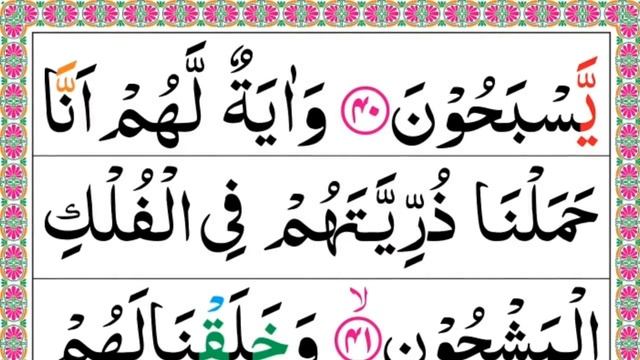 یَّسْبَحُوْنَ ﴿۴۰﴾ وَاٰیَةٌ لَّهُمْ اَنَّا
حَمَلْنَا ذُرِّیَّتَهُمْ فِی الْفُلْكِ
الْمَشْحُوْنِ ﴿۴۱﴾ۙ وَخَلَقْنَا لَهُمْ